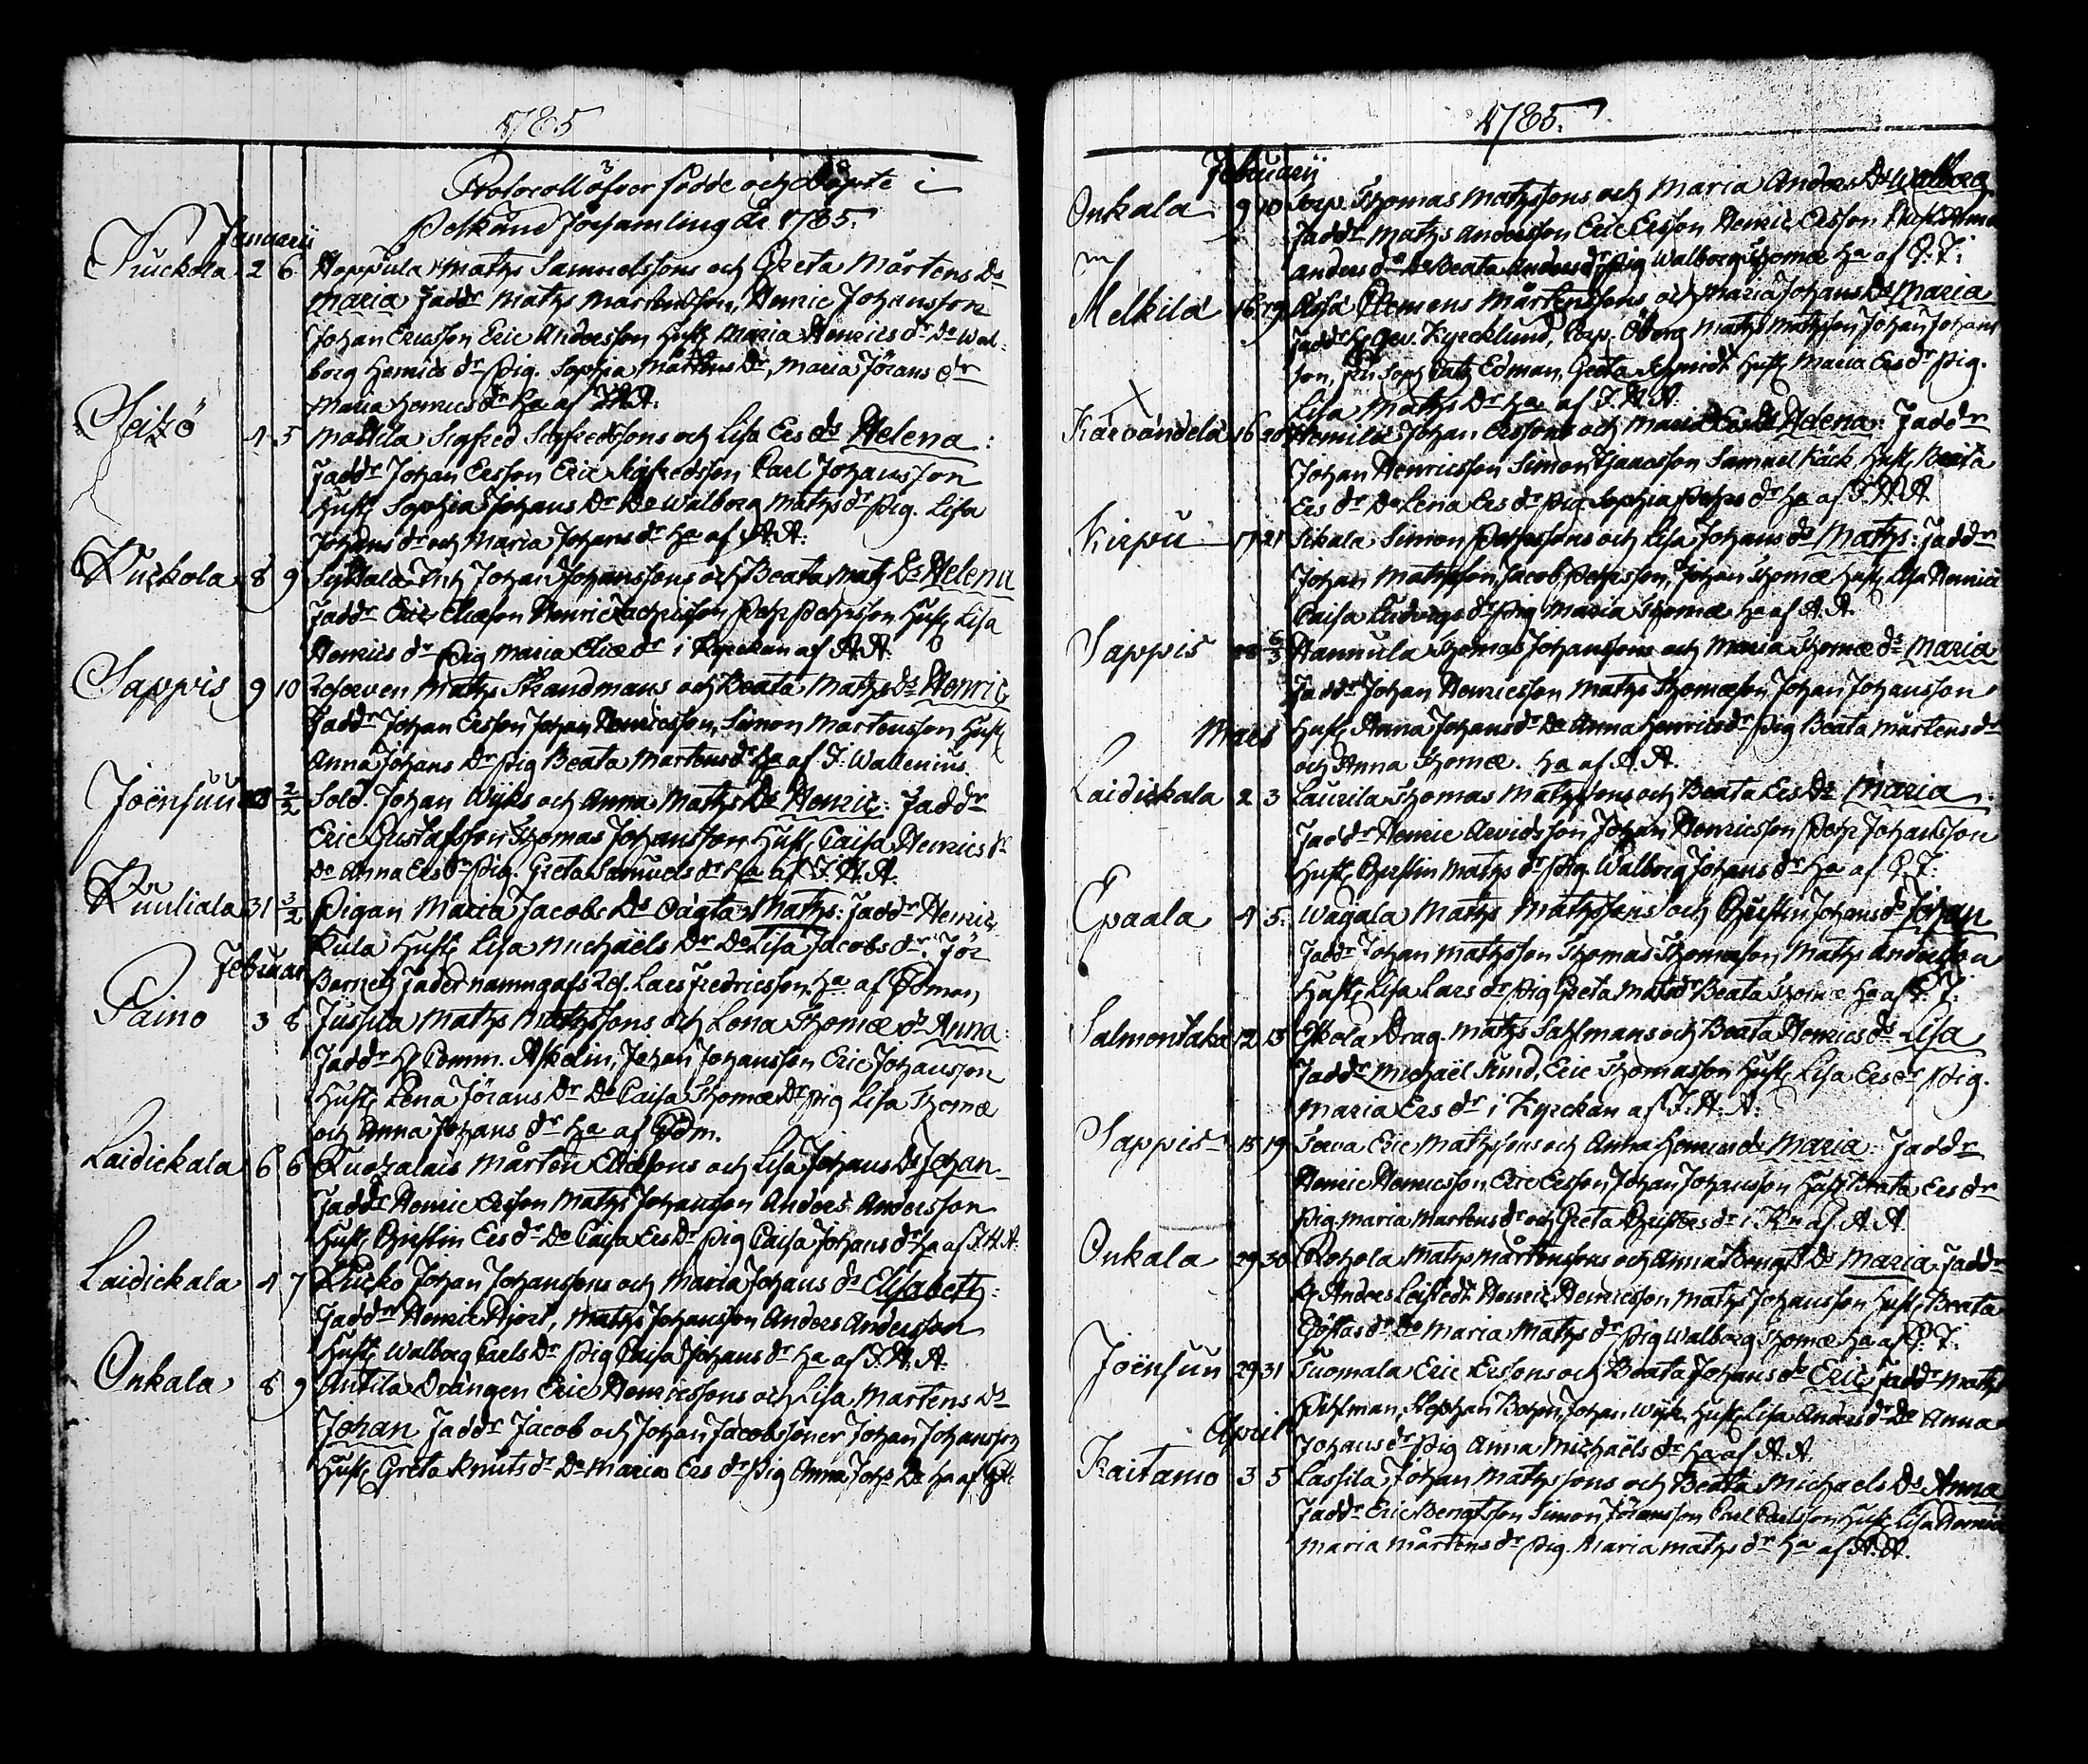 1785
Protocoll öfver födde och döpte i
Pelkäne församling År 1785.
Januarii
Kuckola 2 6 Heppula Mathz Samuelssons och Greta Mårtens Ds
Maria Faddr Mathz Mårtensson, Henric Johansson
Johan Ericsson Eric Andersson Hust Maria Henrics dr Do Wal-
borg Henrics dr Pig. Sophia Mårtens Dr, Maria Jörans dr
Maria Henrics dr Ha af
Seitzö 4 5 Mattila Sigfred Sigfredssons och Lisa Ers ds Helena:
Faddr Johan Ersson Eric Sigfredsson Carl Johansson
Hust Sophia Johans Dr Do Walborg Mathz dr Pig. Lisa
Johans dr och Maria Johans dr Ha af A.A.
Kuckola 8 9 Johan Johanssons och Beata Math Ds Helena
Faddr Eric Eliæson Henric Zachrisson Pehr Pehrsson Hust Lisa
Henrics dr Pig Maria Eliæ dr i Kyrckan af A.A.
Sappis 9 10 Mathz Strandmans och Beata Mathz ds Henric
Faddr Johan Ersson Johan Henricsson, Simon Mårtensson Hust
Anna Johans Dr Pig Beata Mårtens dr Ha af J. Wallenius
Joënsuu 2/2 Sold. Johan Wijks och Anna Mathz Ds Henric: Faddr
Eric Gustafsson Thomas Johansson Hust Caisa Henrics dr
Do Anna Ers dr Pig. Greta Samuels dr Ha af J.H.A.
Kuuliala 31 3/2 Pigan Maria Jacobs Ds oägta Mathz: Faddr Henric
Kula Hust Lisa Michaëls Dr Do Lisa Jacobs dr. För
Februar
Barnetz fader namngafs Lars Fredricsson. Ha af
Paino 3 8 Jussila Mathz Mathzssons och Lena Thomæ ds Anna:
Faddr Hr Comm. Askolin, Johan Johansson Eric Johansson
Hust Lena Jörans Dr Do Caisa Thomæ Dr Pig Lisa Thomæ
och Anna Johans dr Ha af
Laidickala 6 6 Mårten Eliæsons och Lisa Johans Ds Johan
Faddr Henric Ersson Mathz Johansson Anders Andersson
Hust Christin Ers dr Do Caisa Ers Dr Pig Caisa Johans dr Ha af J.H.A.
Laidickala 4 7 Kucko Johan Johanssons och Maria Johans ds Elisabeth:
Faddr Henric Hjort, Mathz Johansson Anders Andersson
Hust Walborg Carls Dr Pig Caisa Johans dr Ha af J.H.A.
Onkala 8 9 Antila Drängen Eric Henricssons och Lisa Mårtens Ds
Johan Faddr Jacob och Johan Jacobssöner Johan Johansson
Hust Greta Knuts dr Do Maria Ers dr Pig Anna Johs Dr Ha af
1785.
Februarij
Onkala 9 10 Thomas Mathzsons och Maria Anders Ds Walborg
Faddr Mathz Andersson Eric Ersson Henric Ersson Hust Anna
Anders dr Do Beata Anders dr Pig Walborg Thomæ Ha af
Melkilä 16 19 Clemens Mårtenssons och Maria Johans Ds Maria
Faddr Kyrcklund, Corp. Öberg Mathz Mathzson Johan Johans
son, Edman, Greta Schmidt Hust Maria Ers dr Pig.
Lisa Mathz Dr Ha af J.H.A.
Karvandela 16 20 Johan Erssons och Maria Ers ds Helena: Faddr
Johan Henricsson Simon Isaacsson Samuel Käck Hust Beata
Ers dr Do Lena Ers dr Pig Sophia Pehrs dr Ha af J.H.A.
Kirpu 17 21 Sikala Simon Pehrssons och Lisa Johans ds Mathz: Faddr
Johan Mathzson, Jacob Pehrsson, Johan Thomæ Hust Lisa Henrics
Caisa Ludvigs dr Pig Maria Thomæ Ha af A.A.
Sappis 28 6/3 Hannula Thomas Johanssons och Maria Thomæ ds Maria
Faddr Johan Henricsson Mathz Thomæson Johan Johansson
Mars Hust Anna Johans dr Do Anna Henrics dr Pig Beata Mårtens dr
och Anna Thomæ. Ha af A.A.
Laidickala 2 3 Laurila Thomas Mathzsons och Beata Ers Ds Maria.
Faddr Henric Arvidsson Johan Henricsson Pehr Johansson
Hust Christin Mathz dr Pig. Walborg Johans dr Ha af
Epaala 4 5. Wägala Mathz Mathzsons och Christin Johans ds Johan
Faddr Johan Mathzson Thomas Thomæson, Mathz Andersson
Hust Lisa Lars dr Pig Greta Mats dr Beata Thomæ Ha af
Salmentaka 12 13 Eskola Drag. Mathz Sahlmans och Beata Henrics ds Lisa
Faddr Michaël Sund, Eric Thomasson Hust Lisa Ers dr Pig.
Maria Ers dr i Kyrckan af J.H.A.
Sappis 15 19 Eric Mathzsons och Anna Henrics ds Maria. Faddr
Henric Henricsson, Eric Ersson Johan Johansson Hust Beata Ers dr
Pig. Maria Mårtens dr och Greta Christers dr i Kn af A.A.
Onkala 29 30 Rohola Mathz Mårtenssons och Anna Bengts Ds Maria. Faddr
Hr Anders Leistedt Henric Henricsson Mathz Johansson Hust Beata
Göstas dr Do Maria Mathz dr Pig Walborg Thomæ Ha af
Joënsuu 29 31 Suomala Eric Erssons och Beata Johans ds Eric Faddr Mathz
Pihlman, Stephan Johan Wijk, Hust Lisa Anders dr Do Anna
April
Johans dr Pig Anna Michaëls dr Ha af A.A.
Kaitamo 3 5 Lassila Johan Mathzsons och Beata Michaels Ds Anna
Faddr Eric Bengtsson Simon Jöransson Carl Carlsson Hust Lisa Henrics
Maria Mårtens dr Pig. Maria Mathz dr Ha af A.A.